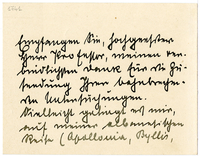 Empfangen Sie, hochgeehrter
Herr Professor, meinen ver-
bindlichsten Dank für die Zu-
sendung Ihrer bahnbreche-
den Untersuchungen.
Vielleicht gelingt es mir,
auf meiner albanesischen
Reise (Apollonia, Byllis,